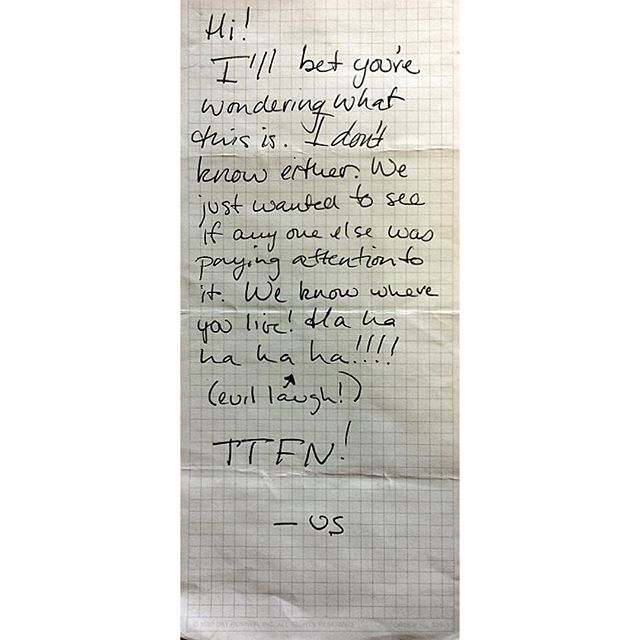 Hi!
I'll bet you're
wondering what
this is. I don't
know either. We
just wanted to see
if any one else was
paying attention to
it. We know where
you live! Ha ha
ha ha ha!!!!
(evil laugh!)
TTFN!
— US